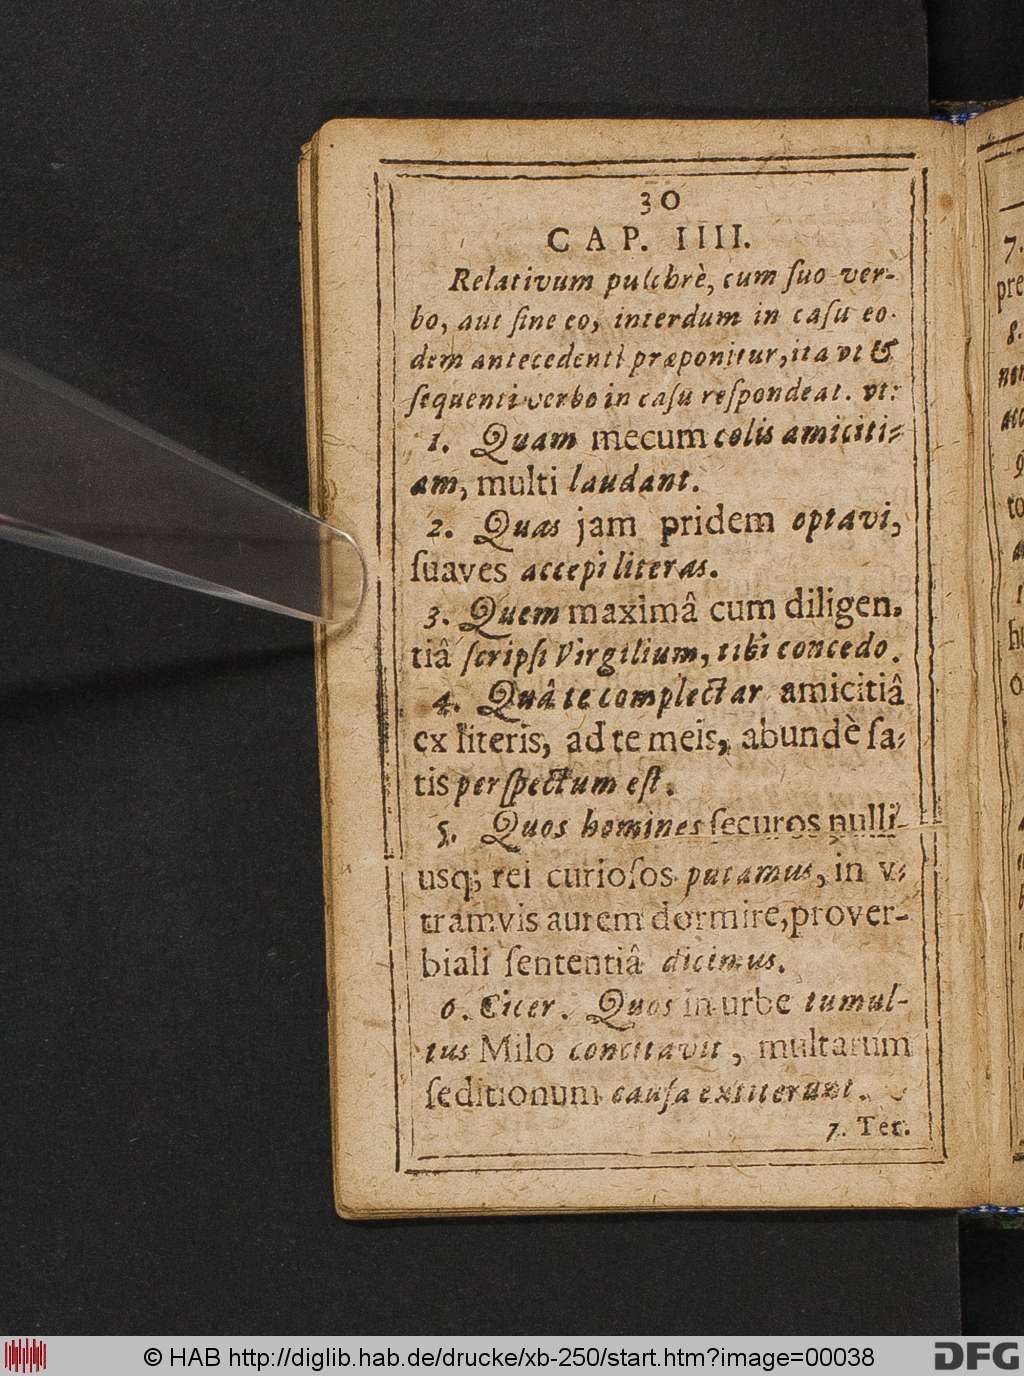 30
CAP. IIII.
Relativum pulchrè, cum ſuo ver-
bo, aut ſine eo, interdum in caſu eo-
dem antecedenti præponitur, ita vt &
ſequenti verbo in caſu reſpondeat. vt:
1. Quam mecum colis amiciti-
am, multi laudant.
2. Quas jam pridem optavi,
ſuaves accepi literas.
3. Quem maximâ cum diligen-
tiâ ſcripſi Virgilium, tibi concedo.
4. Quâ te complectar amicitiâ
ex literis, ad te meis, abundè ſa-
tis perſpectum eſt.
5. Quos homines ſecuros nulli-
usq; rei curioſos putamus, in v-
tramvis aurem dormire, prover-
biali ſententiâ dicimus.
6. Cicer. Quos in urbe tumul-
tus Milo concitavit, multarum
ſeditionum cauſa extiterunt.
7. Ter.
7.
pre
8.
© HAB http://diglib.hab.de/drucke/xb-250/start.htm?image=00038
DFG